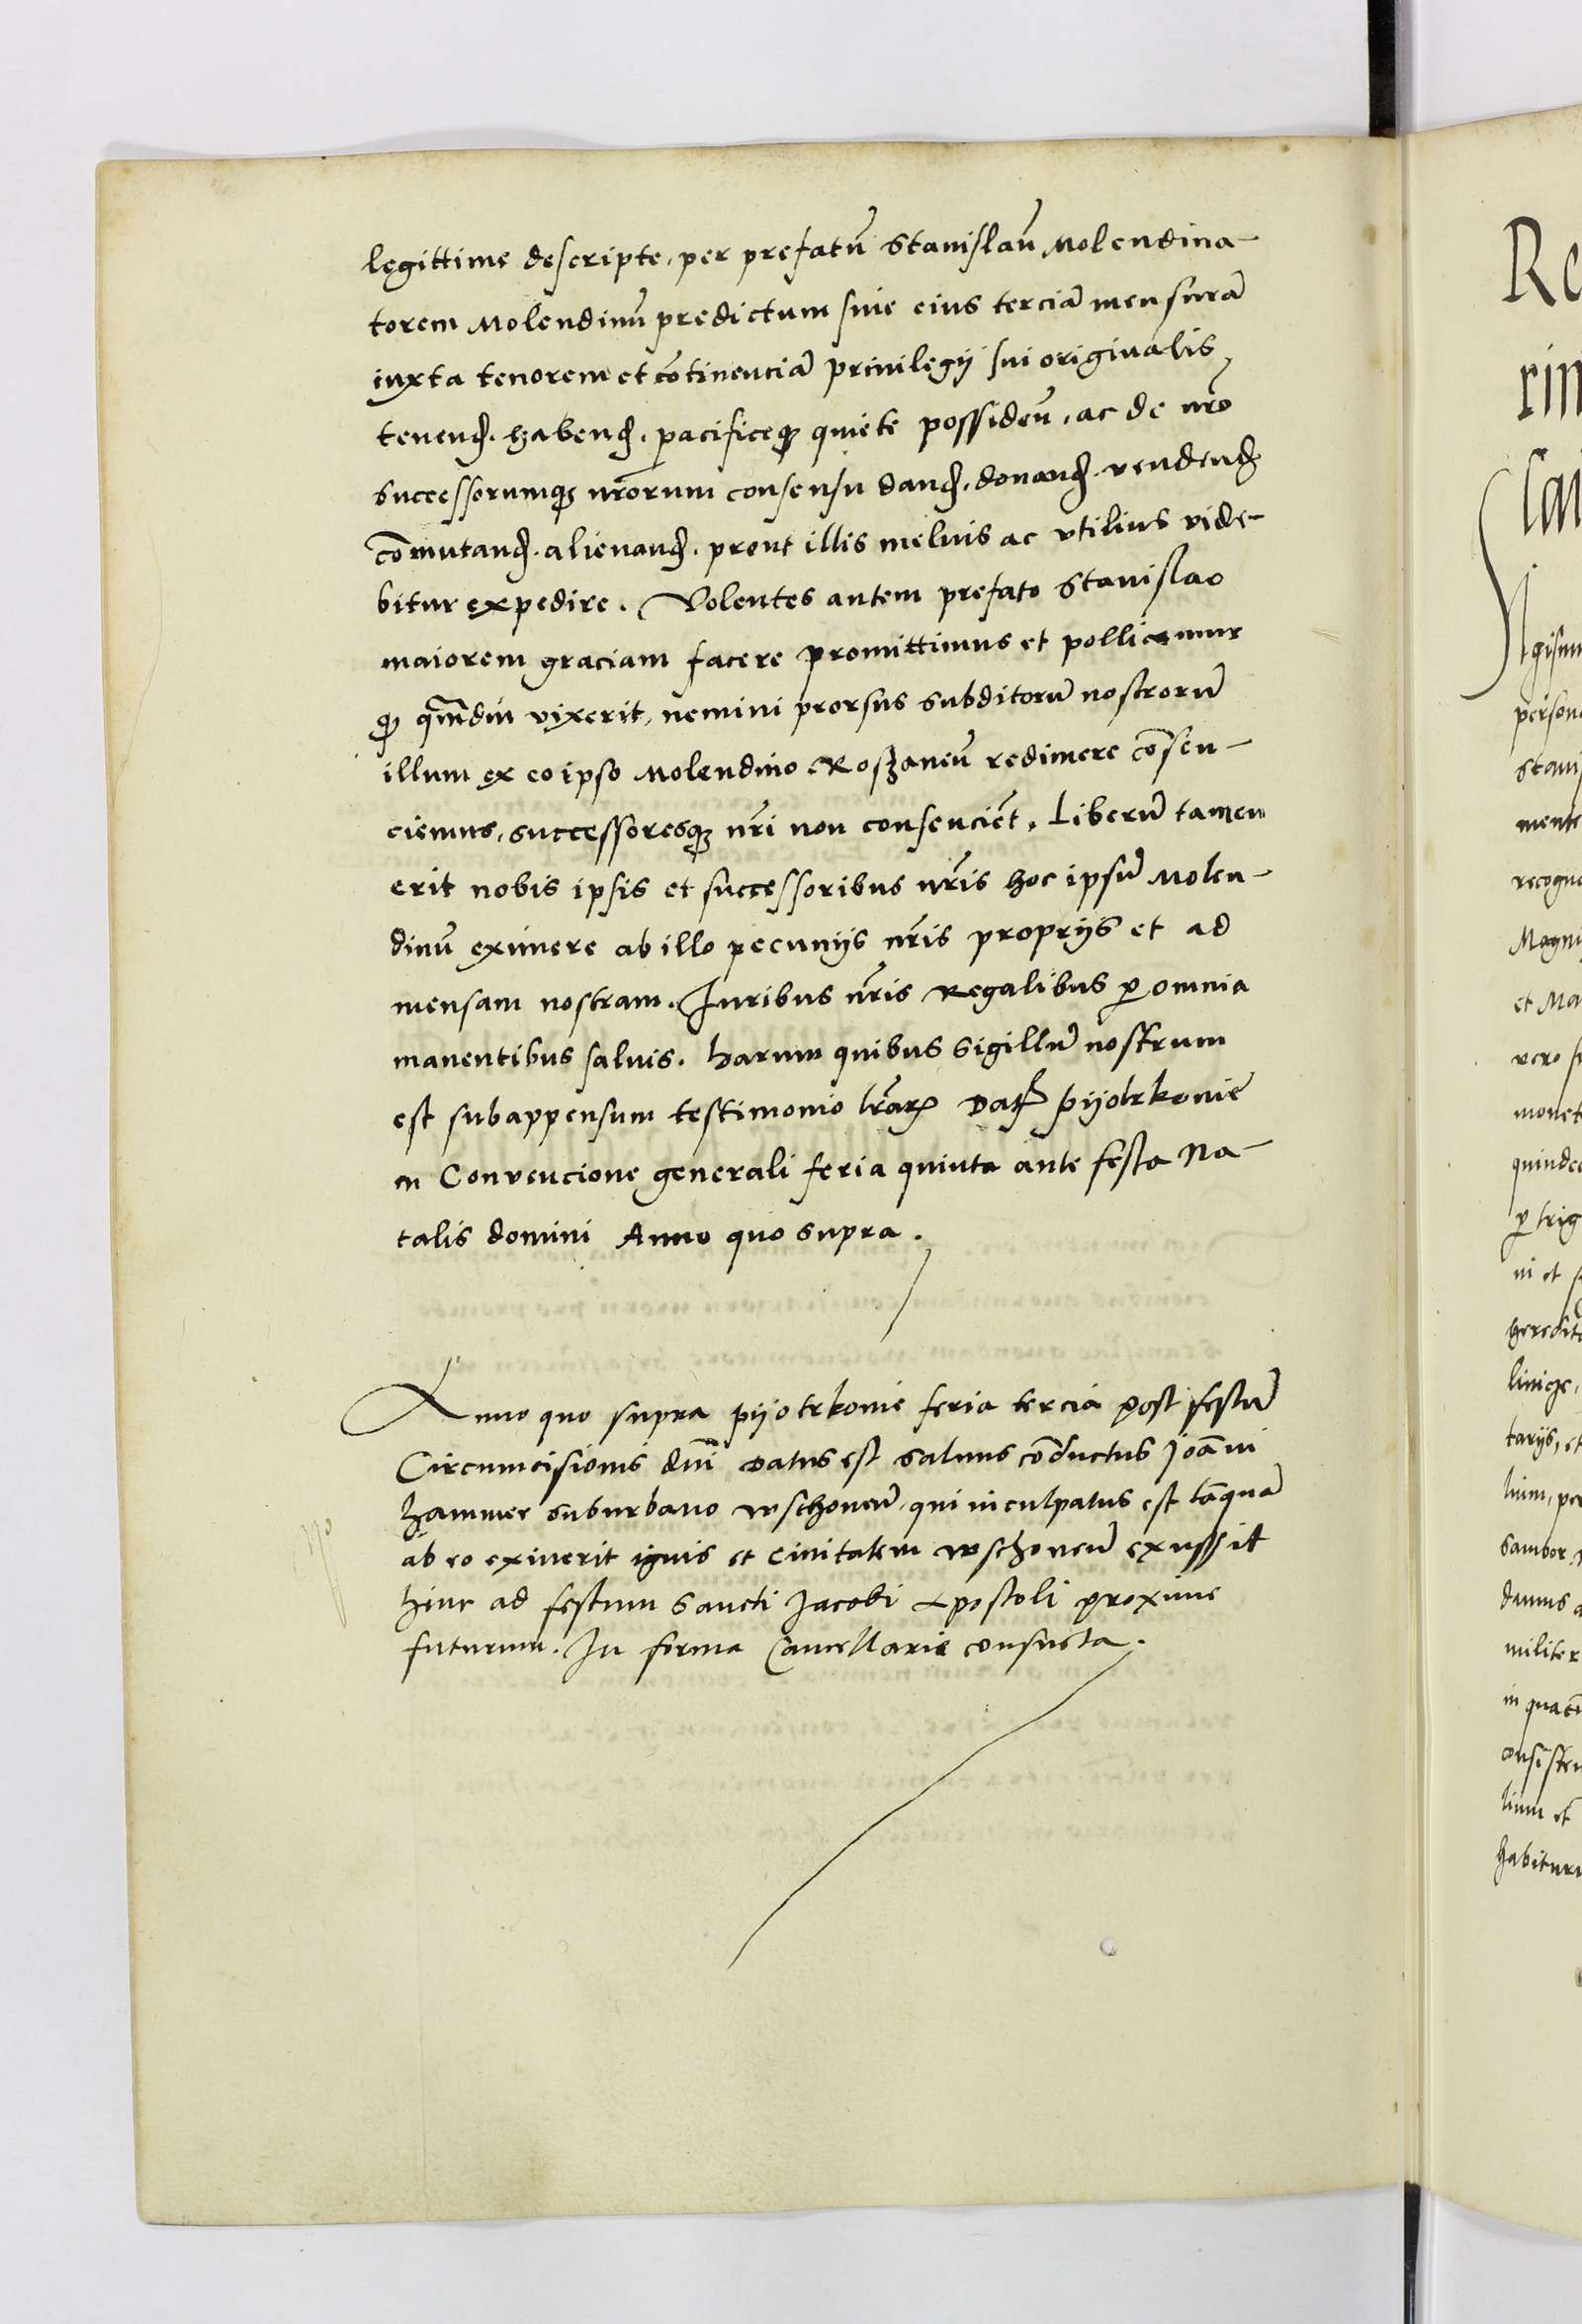 legittime descripte, per prefatū Stanislaū Molendina-
torem Molendinū predictum siue eius terciā mensurā
iuxta tenorem et cōtinenciā priuilegij sui originalis,
tenend. habend. pacificeq; quiete possidēn, ac de nr̄o
successorumq; nr̄orum consensu dand. donand. vendend
cōmutand. alienand. prout illis melius ac vtilius vide-
bitur expedire. Volentes autem prefato Stanislao
maiorem graciam facere promittimus et pollicemur
q; qm̄diu vixerit, nemini prorsus subditorū nostrorū
illum ex eo ipso Molendino Roszaneñ redimere cōsen-
ciemus, successoresq; nr̄i non consenciēt. Liberū tamen
erit nobis ipsis et successoribus nr̄is hoc ipsū Molen-
dinū eximere ab illo pecunijs nr̄is proprijs et ad
mensam nostram. Iuribus nr̄is Regalibus ꝑ omnia
manentibus saluis. harum quibus sigillū nostrum
est subappensum testimonio lr̄aꝝ Dat pijotrkouie
in Convencione generali feria quinta ante festa Na-
talis domini Anno quo supra.
Anno quo supra pijotrkouie feria tercia post festū
Circumcisionis dn̄i datus est saluus cōductus Joāni
hammer suburbano wschoueñ, qui inculpatus est tāquā
ab eo exiuerit ignis et Ciuitatem wschoueñ exussit
hinc ad festum Sancti Jacobi Apostoli proxime
futurum. In forma Cancellarie consueta.
Re
rim
Sai
gismu
person
Stanis
mente
recogno
Magni
et Ma
vero s
monet
quindec
ꝑ trig
ni et s
heredit
linige,
tarijs, et
lium, per
Sambor
damus a
militer
in quat
consisten
lium et
habitur